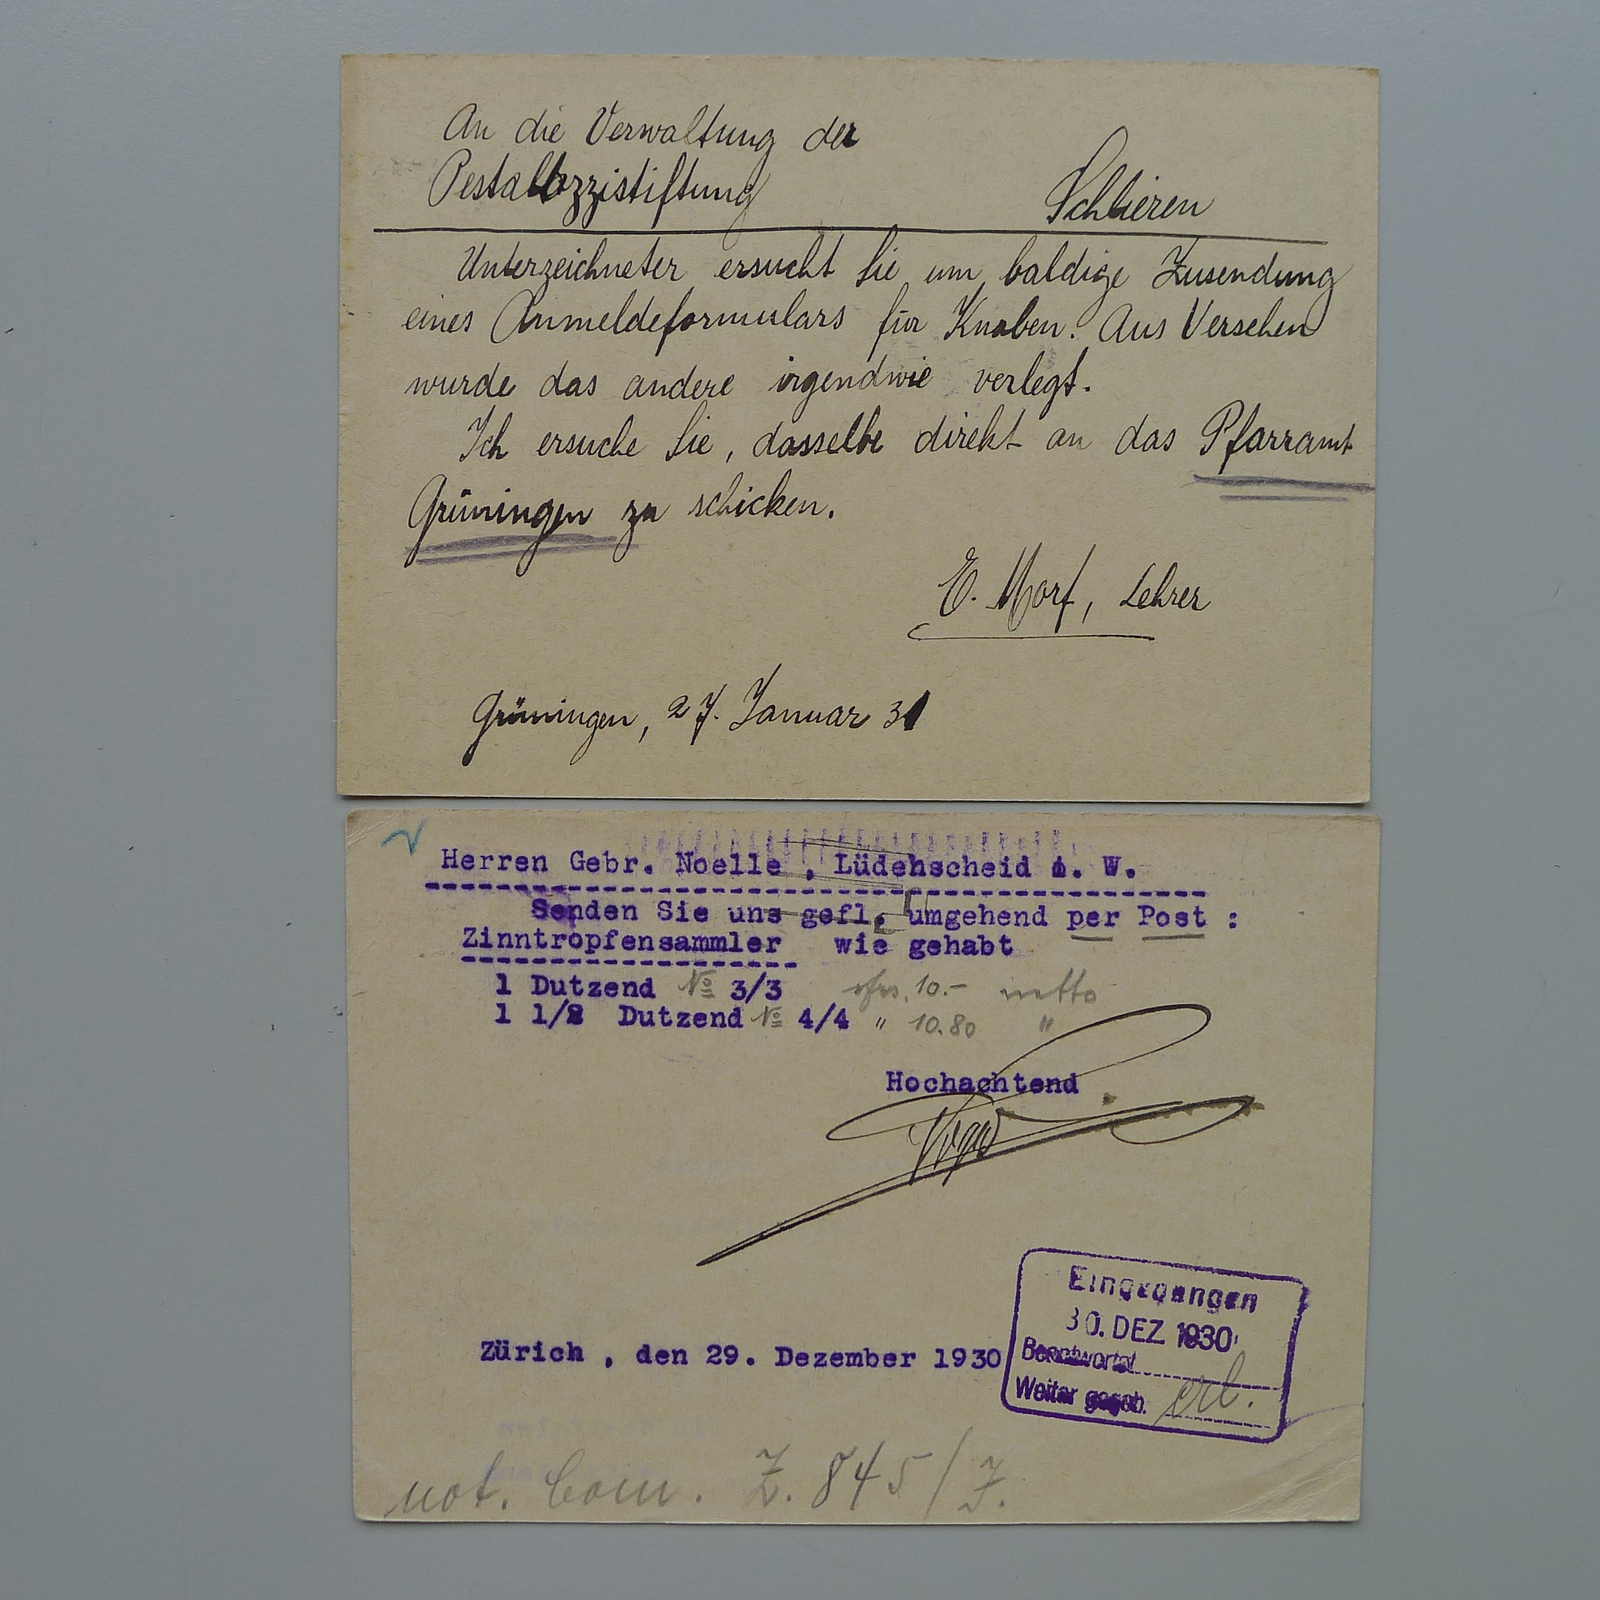 An die Verwaltung der
Pestalozzistiftung Schlieren
Unterzeichneter ersucht Sie um baldige Zusendung
eines Anmeldeformulars für Knaben. Aus Versehen
wurde das andere irgendwie verlegt.
Ich ersuche Sie, dasselbe direkt an das Pfarramt
Grüningen zu schicken.
E. Morf, Lehrer
Grüningen, 27. Januar 31
Herren Gebr. Noelle, Lüdenscheid i. W.
Senden Sie uns gefl. umgehend per Post :
Zinntropfensammler wie gehabt
1 Dutzend No 3/3 sfrs. 10.- netto
1 1/2 Dutzend No 4/4 " 10.80 "
Hochachtend
Zürich , den 29. Dezember 1930
Eingegangen
30. DEZ 1930
Beantwortet
Weiter gegeb. erl.
not. Com. Z. 845/J.